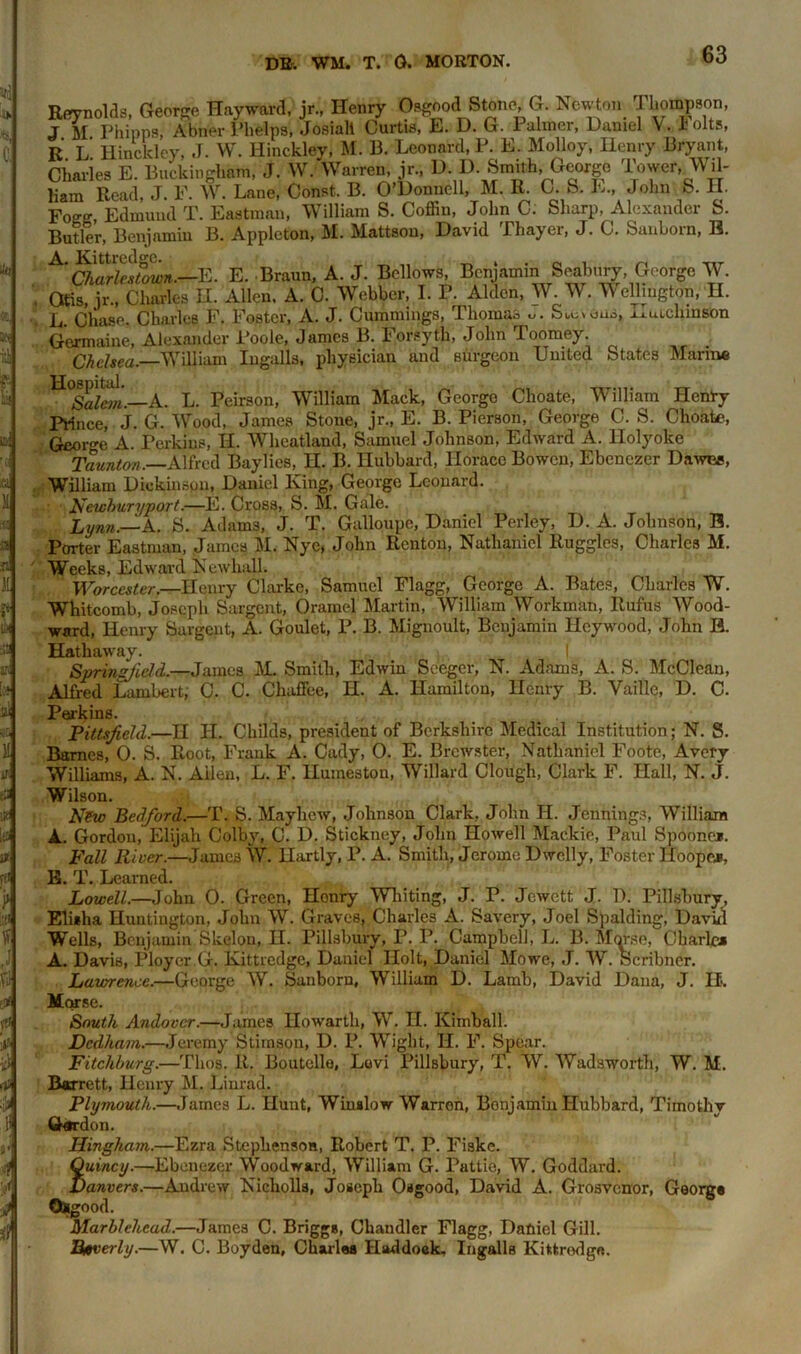 DR. WM. T. G. MORTON.
63
Reynolds, George Hayward, jr., Henry Osgood Stone, G. Newton Thompson,
J. M. Phipps, Abner Phelps, Josiah Curtis, E. D. G. Palmer, Daniel V. Folts,
R. L. Hinckley, J. W. Hinckley, M. B. Leonard, P. E. Molloy, Henry Bryant,
Charles E. Buckingham, J. W. Warren, jr., D. D. Smith, George Tower, Wil-
liam Read, J. F. W. Lane, Const. B. O'Donnell, M. R. C. S. E., John S. H.
Fogg, Edmund T. Eastman, William S. Coffin, John C. Sharp, Alexander S.
Butler, Benjamin B. Appleton, M. Mattson, David Thayer, J. C. Sanborn, B.
A. Kittredge.
Charlestown.—E. E. Braun, A. J. Bellows, Benjamin Seabury, George W.
Otis, jr., Charles H. Allen, A. C. Webber, I. P. Alden, W. W. Wellington, H.
L. Chase, Charles F. Foster, A. J. Cummings, Thomas J. Stevens, Hutchinson
Germaine, Alexander Poole, James B. Forsyth, John Toomey.
Chelsea.—William Ingalls, physician and surgeon United States Marine
Hospital.
Salem.—A. L. Peirson, William Mack, George Choate, William Henry
Prince, J. G. Wood, James Stone, jr., E. B. Pierson, George C. S. Choate,
George A. Perkins, H. Wheatland, Samuel Johnson, Edward A. Holyoke
Taunton.—Alfred Baylies, H. B. Hubbard, Horace Bowen, Ebenezer Dawes,
William Dickinson, Daniel King, George Leonard.
Newburyport.—E. Cross, S. M. Gale.
Lynn.—A. S. Adams, J. T. Galloupe, Daniel Perley, D. A. Johnson, B.
Porter Eastman, James M. Nye, John Renton, Nathaniel Ruggles, Charles M.
Weeks, Edward Newhall.
Worcester.—Henry Clarke, Samuel Flagg, George A. Bates, Charles W.
Whitcomb, Joseph Sargent, Oramel Martin, William Workman, Rufus Wood-
ward, Henry Sargent, A. Goulet, P. B. Mignoult, Benjamin Heywood, John B.
Hathaway.
Springfield.—James M. Smith, Edwin Seeger, N. Adams, A. S. McClean,
Alfred Lambert, C. C. Chaffee, H. A. Hamilton, Henry B. Vaille, D. C.
Perkins.
Pittsfield.—H H. Childs, president of Berkshire Medical Institution; N. S.
Barnes, O. S. Root, Frank A. Cady, O. E. Brewster, Nathaniel Foote, Avery
Williams, A. N. Allen, L. F. Humeston, Willard Clough, Clark F. Hall, N. J.
Wilson.
New Bedford.—T. S. Mayhew, Johnson Clark, John H. Jennings, William
A. Gordon, Elijah Colby, C. D. Stickney, John Howell Mackie, Paul Spooner.
Fall River.—James W. Hartly, P. A. Smith, Jerome Dwelly, Foster Hooper,
B. T. Learned.
Lowell.—John O. Green, Henry Whiting, J. P. Jewett J. D. Pillsbury,
Elisha Huntington, John W. Graves, Charles A. Savery, Joel Spalding, David
Wells, Benjamin Skelon, H. Pillsbury, P. P. Campbell, L. B. Morse, Charles
A. Davis, Ployer G. Kittredge, Daniel Holt, Daniel Mowe, J. W. Scribner.
Lawrence.—George W. Sanborn, William D. Lamb, David Dana, J. H.
Morse.
South Andover.—James Howarth, W. H. Kimball.
Dedham.—Jeremy Stimson, D. P. Wight, H. F. Spear.
Fitchburg.—Thos. R. Boutelle, Levi Pillsbury, T. W. Wadsworth, W. M.
Barrett, Henry M. Linrad.
Plymouth.—James L. Hunt, Winslow Warren, Benjamin Hubbard, Timothy
Gordon.
Hingham.—Ezra Stephenson, Robert T. P. Fiske.
Quincy.—Ebenezer Woodward, William G. Pattie, W. Goddard.
Danvers.—Andrew Nicholls, Joseph Osgood, David A. Grosvenor, George
Osgood.
Marblehead.—James C. Briggs, Chandler Flagg, Daniel Gill.
Beverly.—W. C. Boyden, Charles Haddock, Ingalls Kittredge.